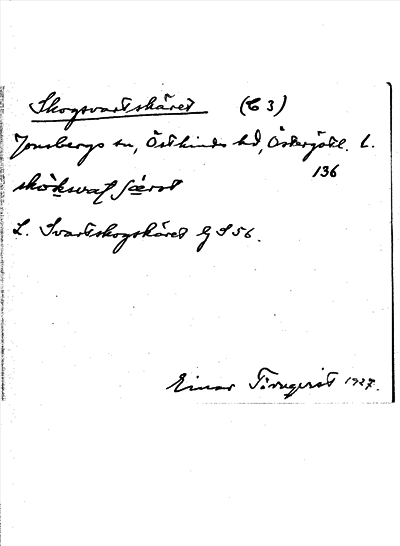 Skogsvartskäret (C 3)
Jonsbergs sn, Östkinds hd, Östergötl. l.
136
L. Svartskogskäret GS 56.
Einar Törnqvist 1927.